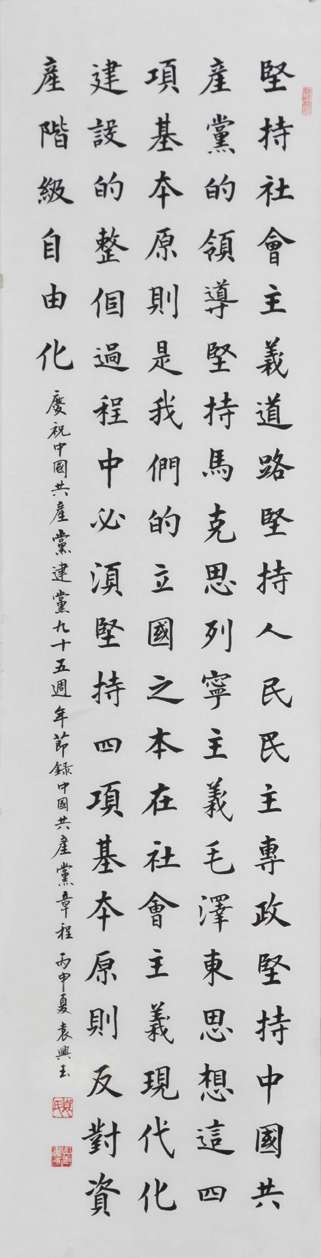 堅持社會主義道路堅持人民民主專政堅持中國共
産黨的領導堅持馬克思列寧主義毛澤東思想這四
項基本原則是我們的立國之本在社會主義現代化
建設的整個過程中必須堅持四項基本原則反對資
産階級自由化
慶祝中國共産黨建黨九十五週年節録中國共産黨章程 丙申夏 袁興玉